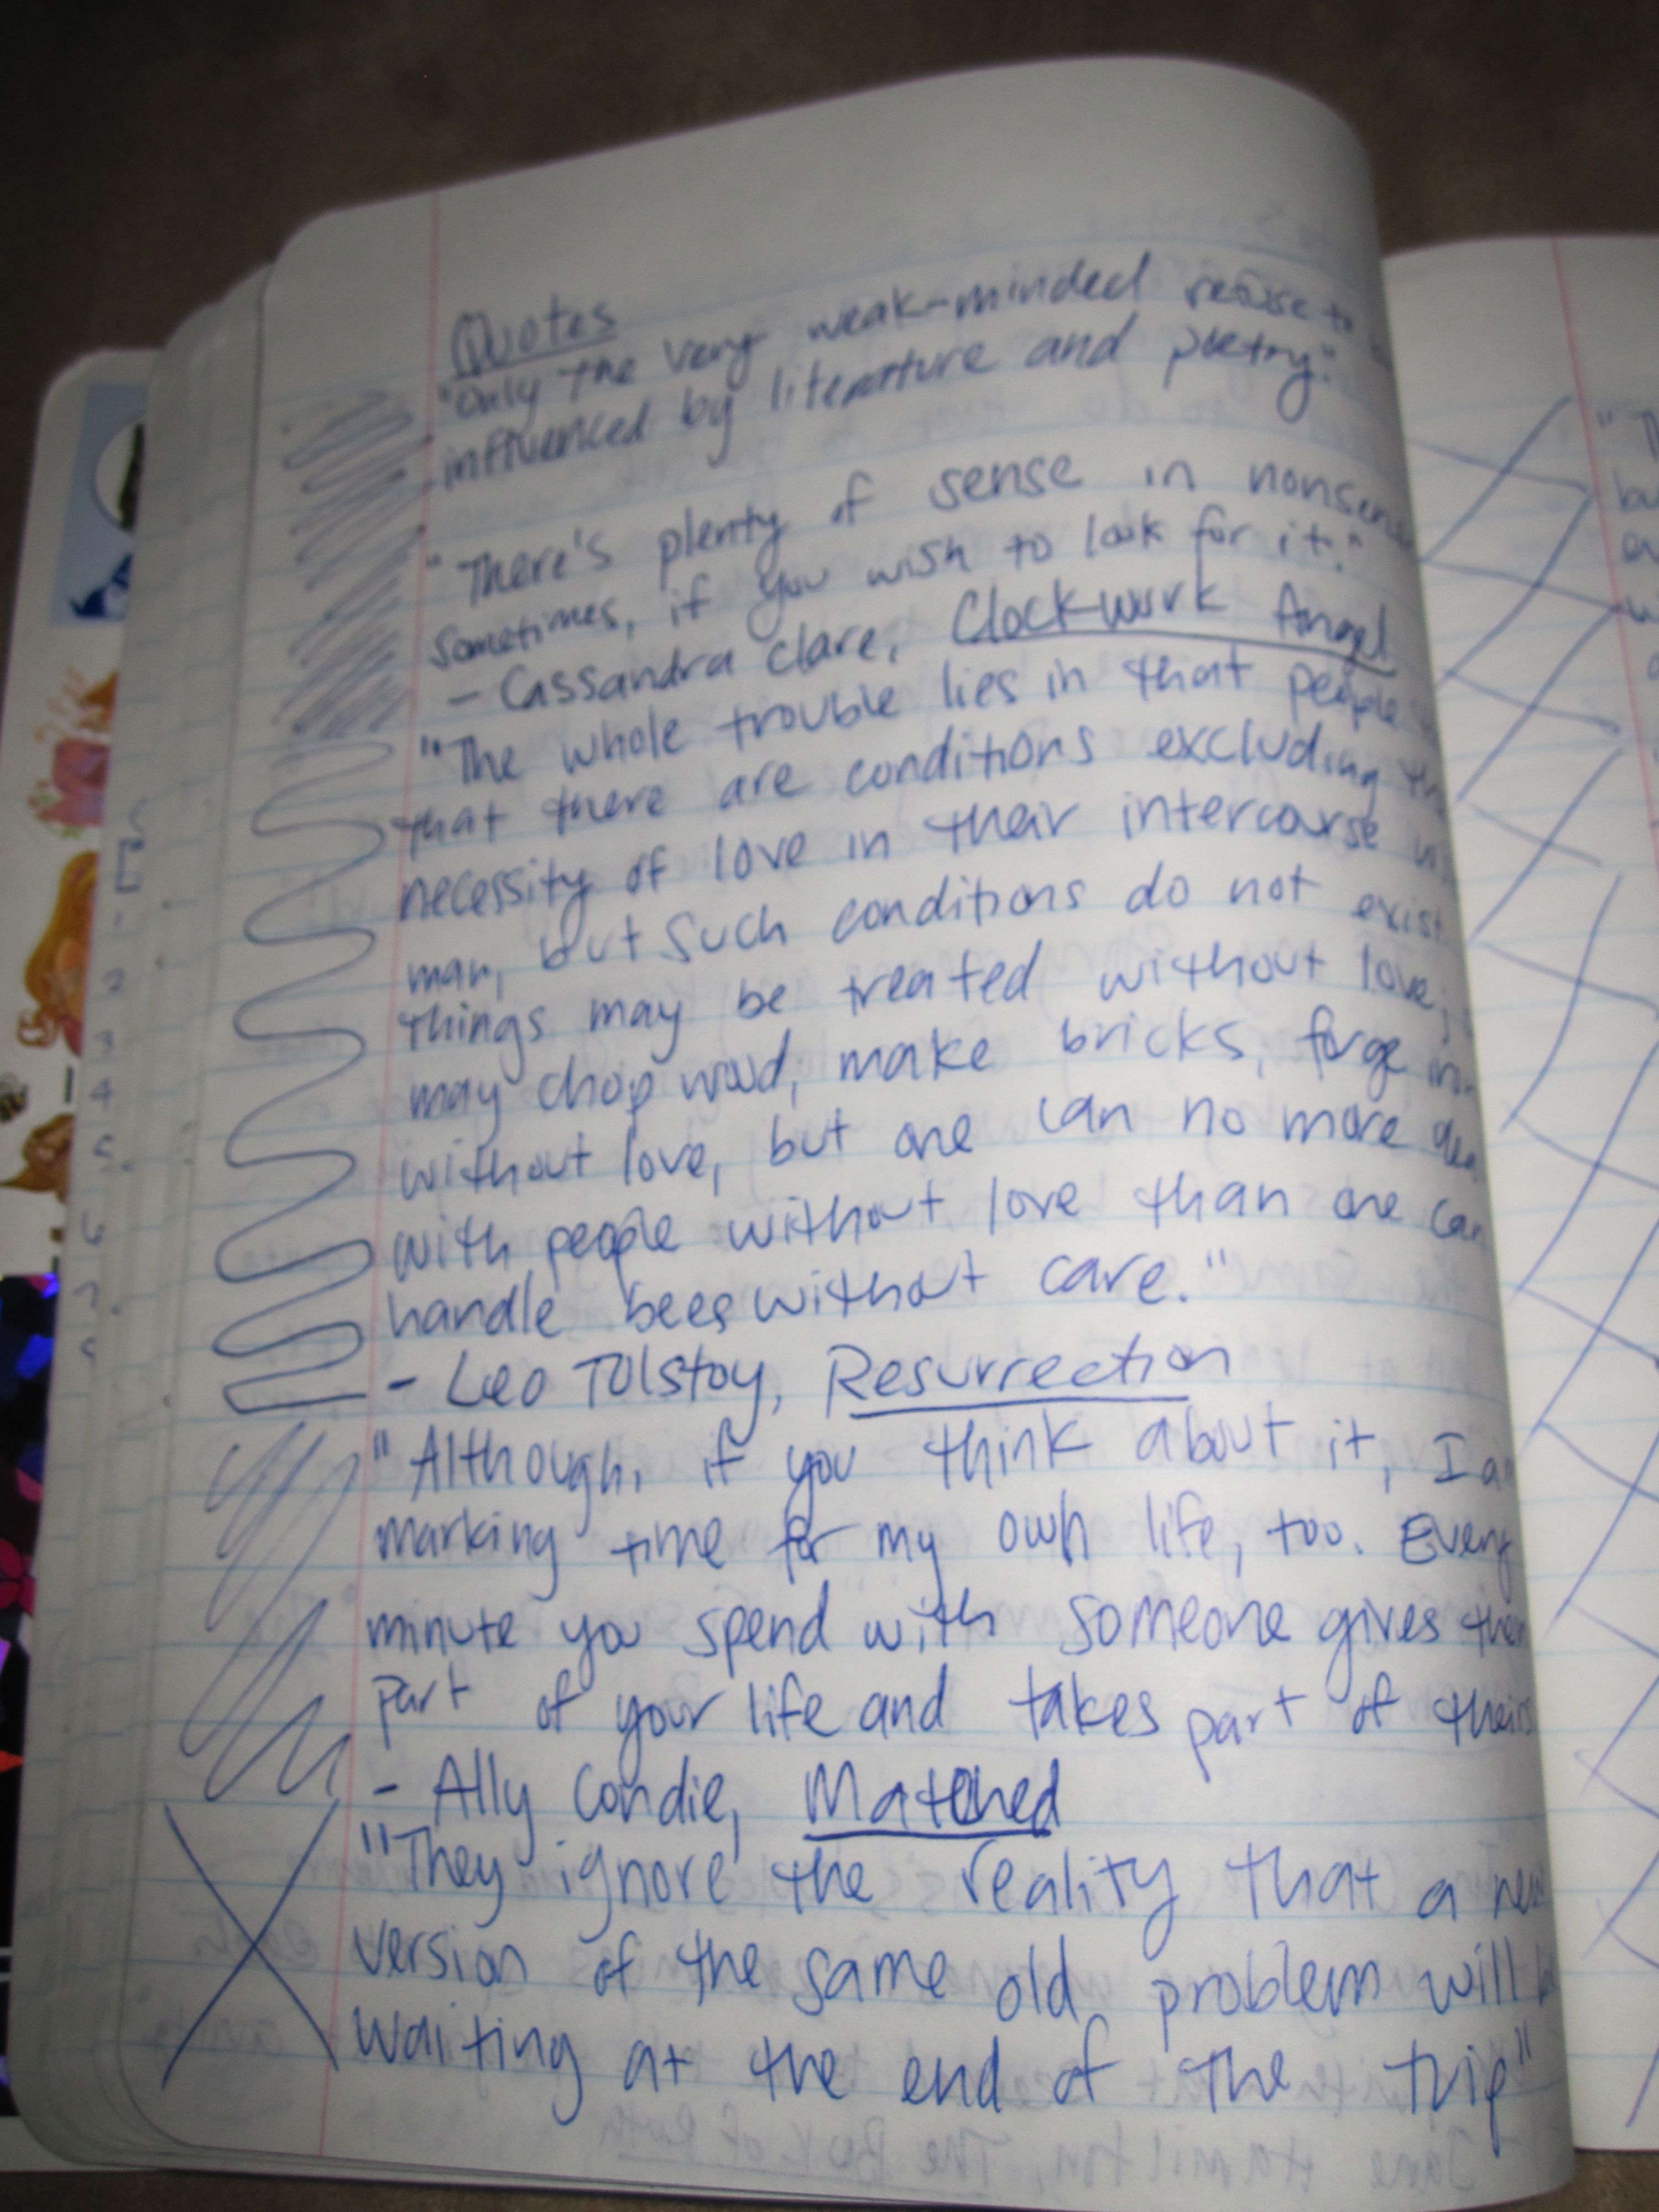 Quotes
"Only the very weak-minded refuse to
influenced by literature and poetry."
"There's plenty of sense in nonsense
sometimes, if you wish to look for it."
- Cassandra Clare, Clockwork Angel
"The whole trouble lies in that people
that there are conditions excluding the
necessity of love in their intercourse
man, but such conditions do not exist.
Things may be treated without love;
may chop wood, make bricks, forge
without love, but one can no more
with people without love than one can
handle bees without care."
- Leo Tolstoy, Resurrection
"Although, if you think about it, I
marking time for my own life, too. Every
minute you spend with someone gives them
part of your life and takes part of theirs
- Ally Condie, Matched
"They ignore the reality that a new
version of the same old problem will
waiting at the end of the trip"
1
2
3
4
5
6
7